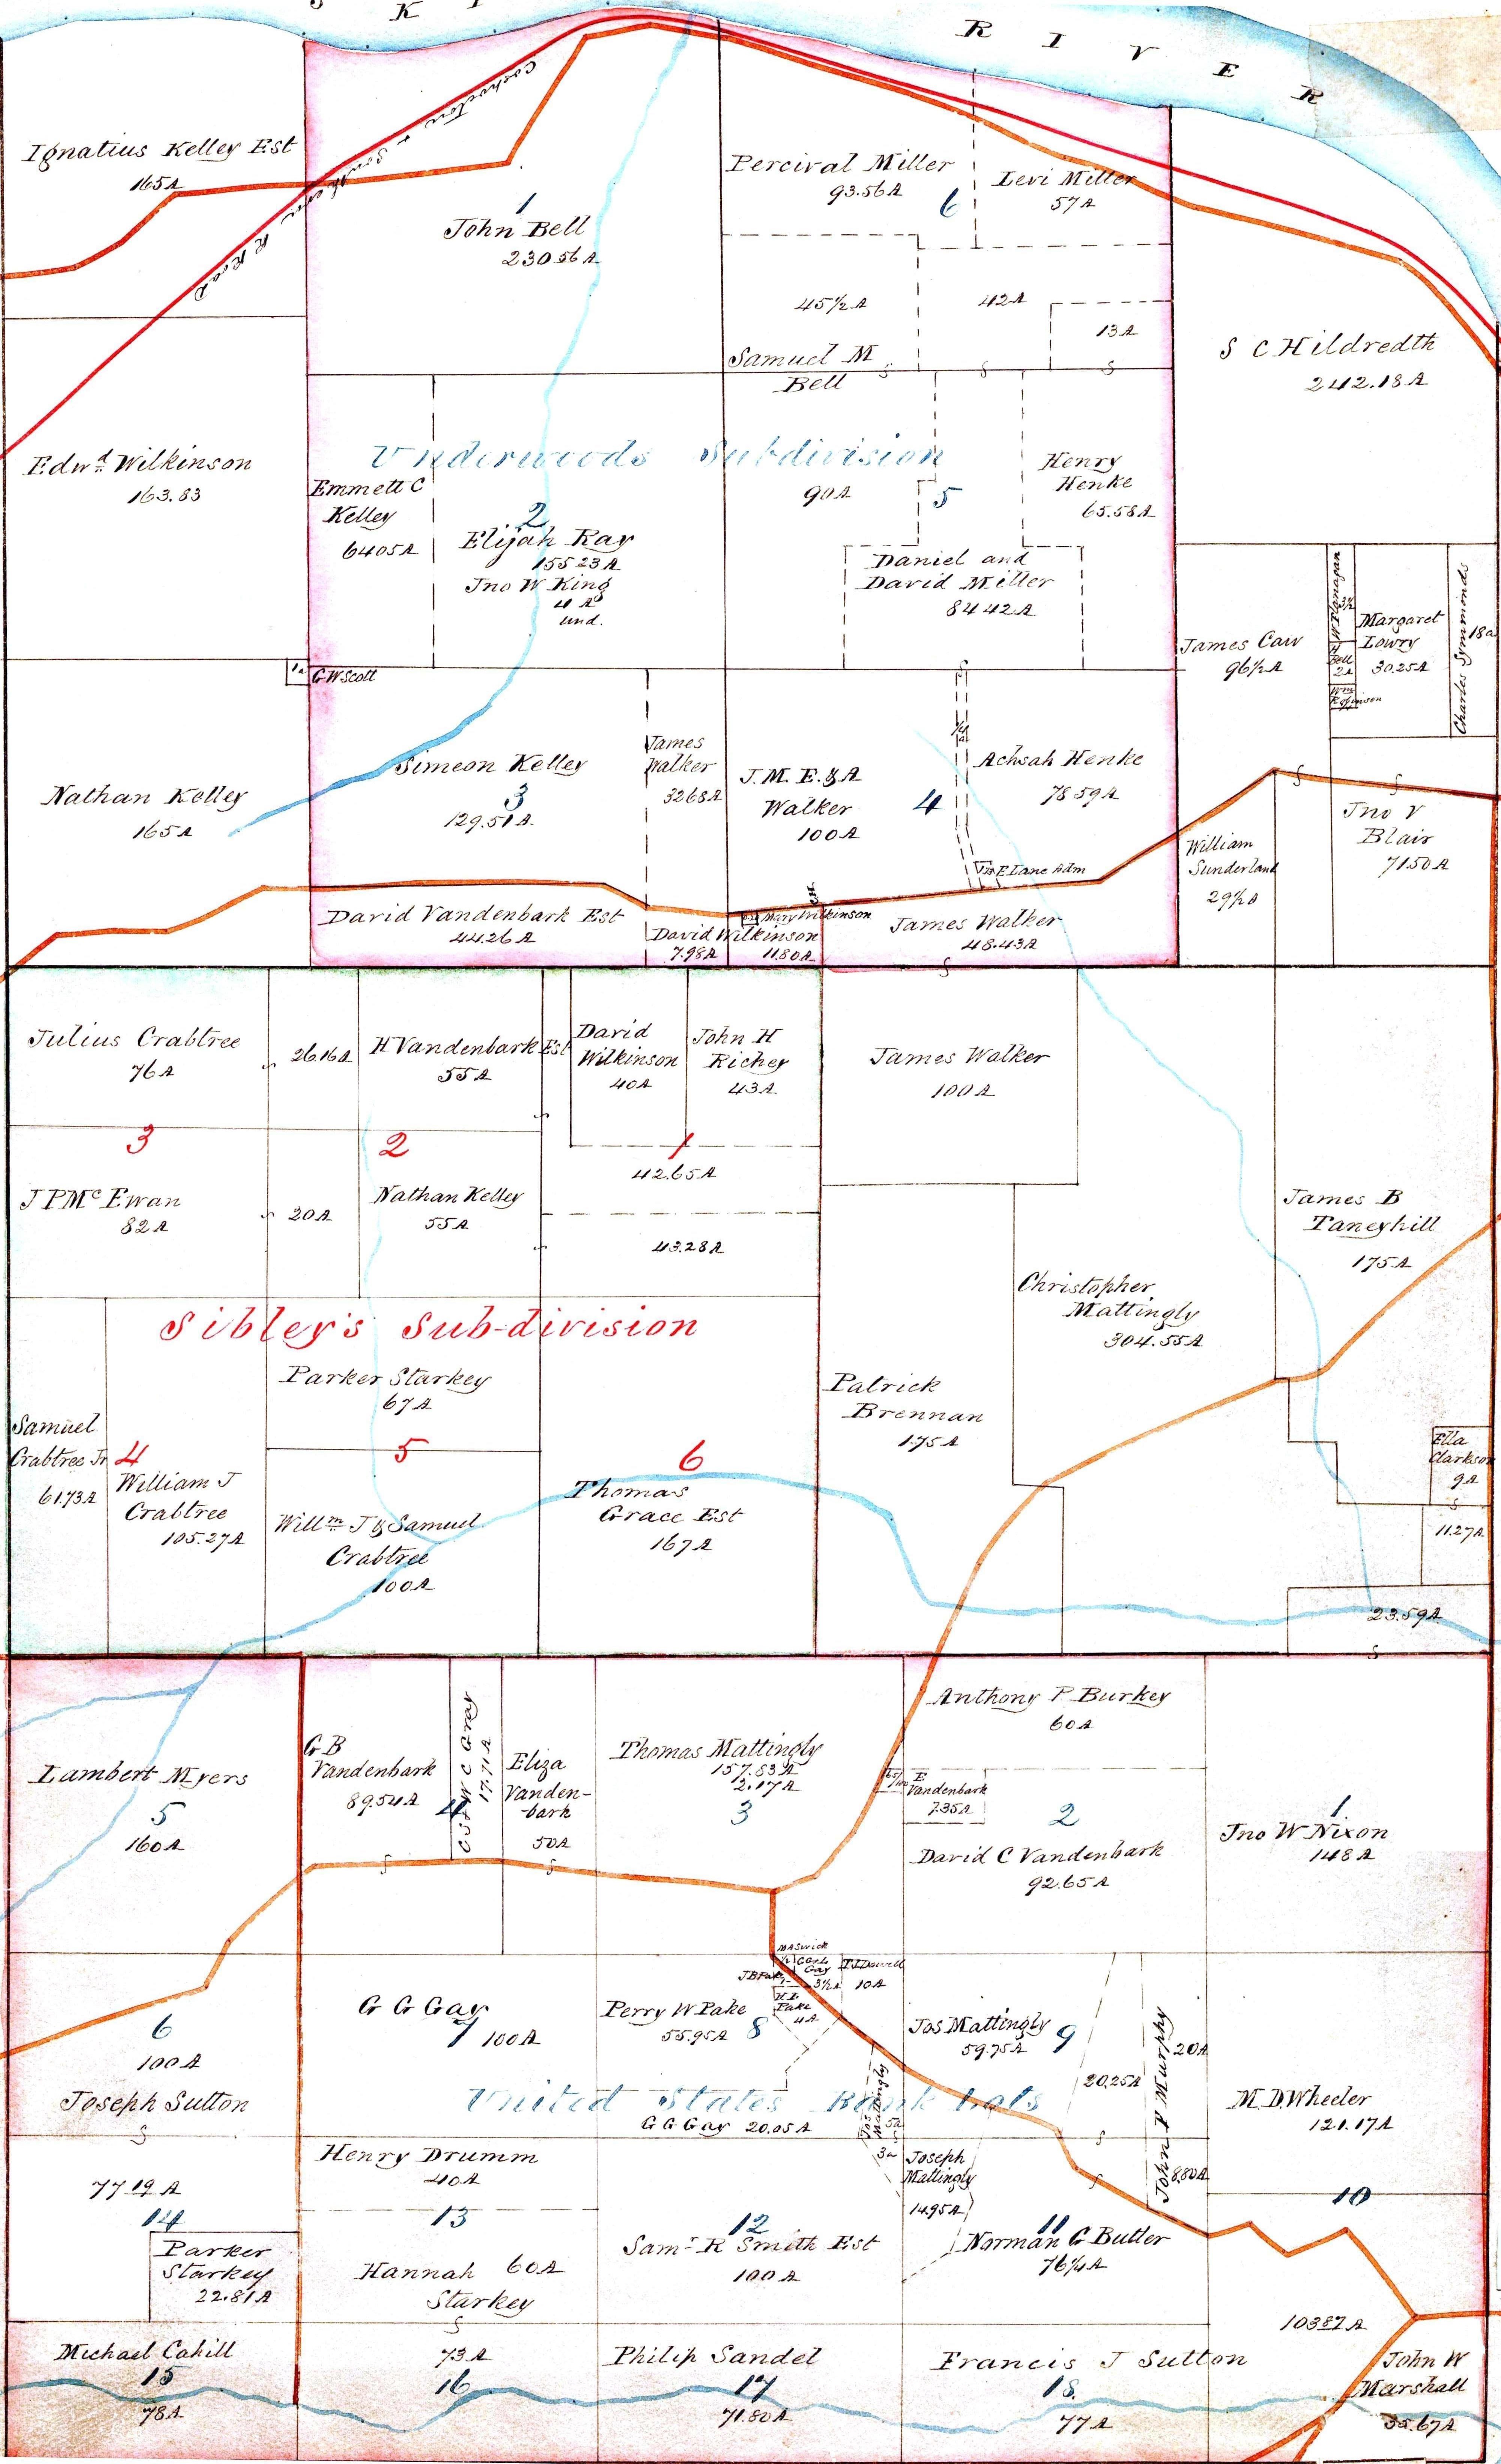 S K
R I V E R
Ignatius Kelley Est
165A
Coshocton & South
R Road
1
John Bell
230 56 A
Percival Miller
93.56 A
6
Levi Miller
57 A
45½ A
42 A
13 A
Samuel M
Bell
S C Hildredth
242.18 A
Edwd Wilkinson
163.83
Underwoods Subdivision
Emmett C
Kelley
64 05 A
2
Elijah Ray
155 23 A
Jno W King
4 A
und.
90 A
5
Henry
Henke
65.58 A
Daniel and
David Miller
84 42 A
James Caw
96½ A
W Flanagan
H
Bell
2 A
Wm
Robinson
Margaret
Lowry
30.25 A
Charles Symmonds
18a
1a
G W Scott
Nathan Kelley
165 A
Simeon Kelley
3
129.51 A
James
Walker
32 68 A
J. M. E. & A
Walker
100 A
4
Achsah Henke
78 59 A
E Lane Adm
William
Sunderland
29½ A
Jno V
Blair
71 50 A
David Vandenbark Est
44.26 A
David Wilkinson
7.98 A
11.80 A
Mary Wilkinson
James Walker
48.43 A
Julius Crabtree
76 A
26.16 A
H Vandenbark Est
55 A
David
Wilkinson
40 A
John H
Richey
43 A
James Walker
100 A
3
2
1
J P Mc Ewan
82 A
20 A
Nathan Kelley
55 A
42.65 A
43.28 A
James B
Taneyhill
175 A
Christopher
Mattingly
304.55 A
Sibley's Sub-division
Parker Starkey
67 A
Patrick
Brennan
175 A
Samuel
Crabtree Jr
61.73 A
4
William J
Crabtree
105.27 A
5
Willm J & Samuel
Crabtree
100 A
6
Thomas
Grace Est
167 A
Ella
Clarkson
9 A
11.27 A
23.59 A
Lambert Myers
5
160 A
G B
Vandenbark
89.54 A
4
C Gray
17.71 A
Eliza
Vanden-
bark
50 A
Thomas Mattingly
157.83 A
2.17 A
3
Anthony P Burkey
60 A
E
Vandenbark
7.35 A
2
David C Vandenbark
92.65 A
1
Jno W Nixon
148 A
6
100 A
Joseph Sutton
G G Gay
7 100 A
Perry W Pake
55.95 A
8
J B Pake
Gay
3½ A
10 A
H L
Pake
4 A
Jos Mattingly
59.75 A
9
20.25 A
John P Murphy
20 A
8.80 A
M. D. Wheeler
121.17 A
United States Bank Lots
G G Gay 20.05 A
Jos
Mattingly
5 A
3a
Joseph
Mattingly
14.95 A
77 19 A
14
Parker
Starkey
22.81 A
Henry Drumm
40 A
13
Hannah 60 A
Starkey
12
Saml R Smith Est
100 A
11
Norman G Butler
76¼ A
10
103 87 A
Michael Cahill
15
78 A
73 A
16
Philip Sandel
17
71.80 A
Francis J Sutton
18.
77 A
John W
Marshall
35.67 A